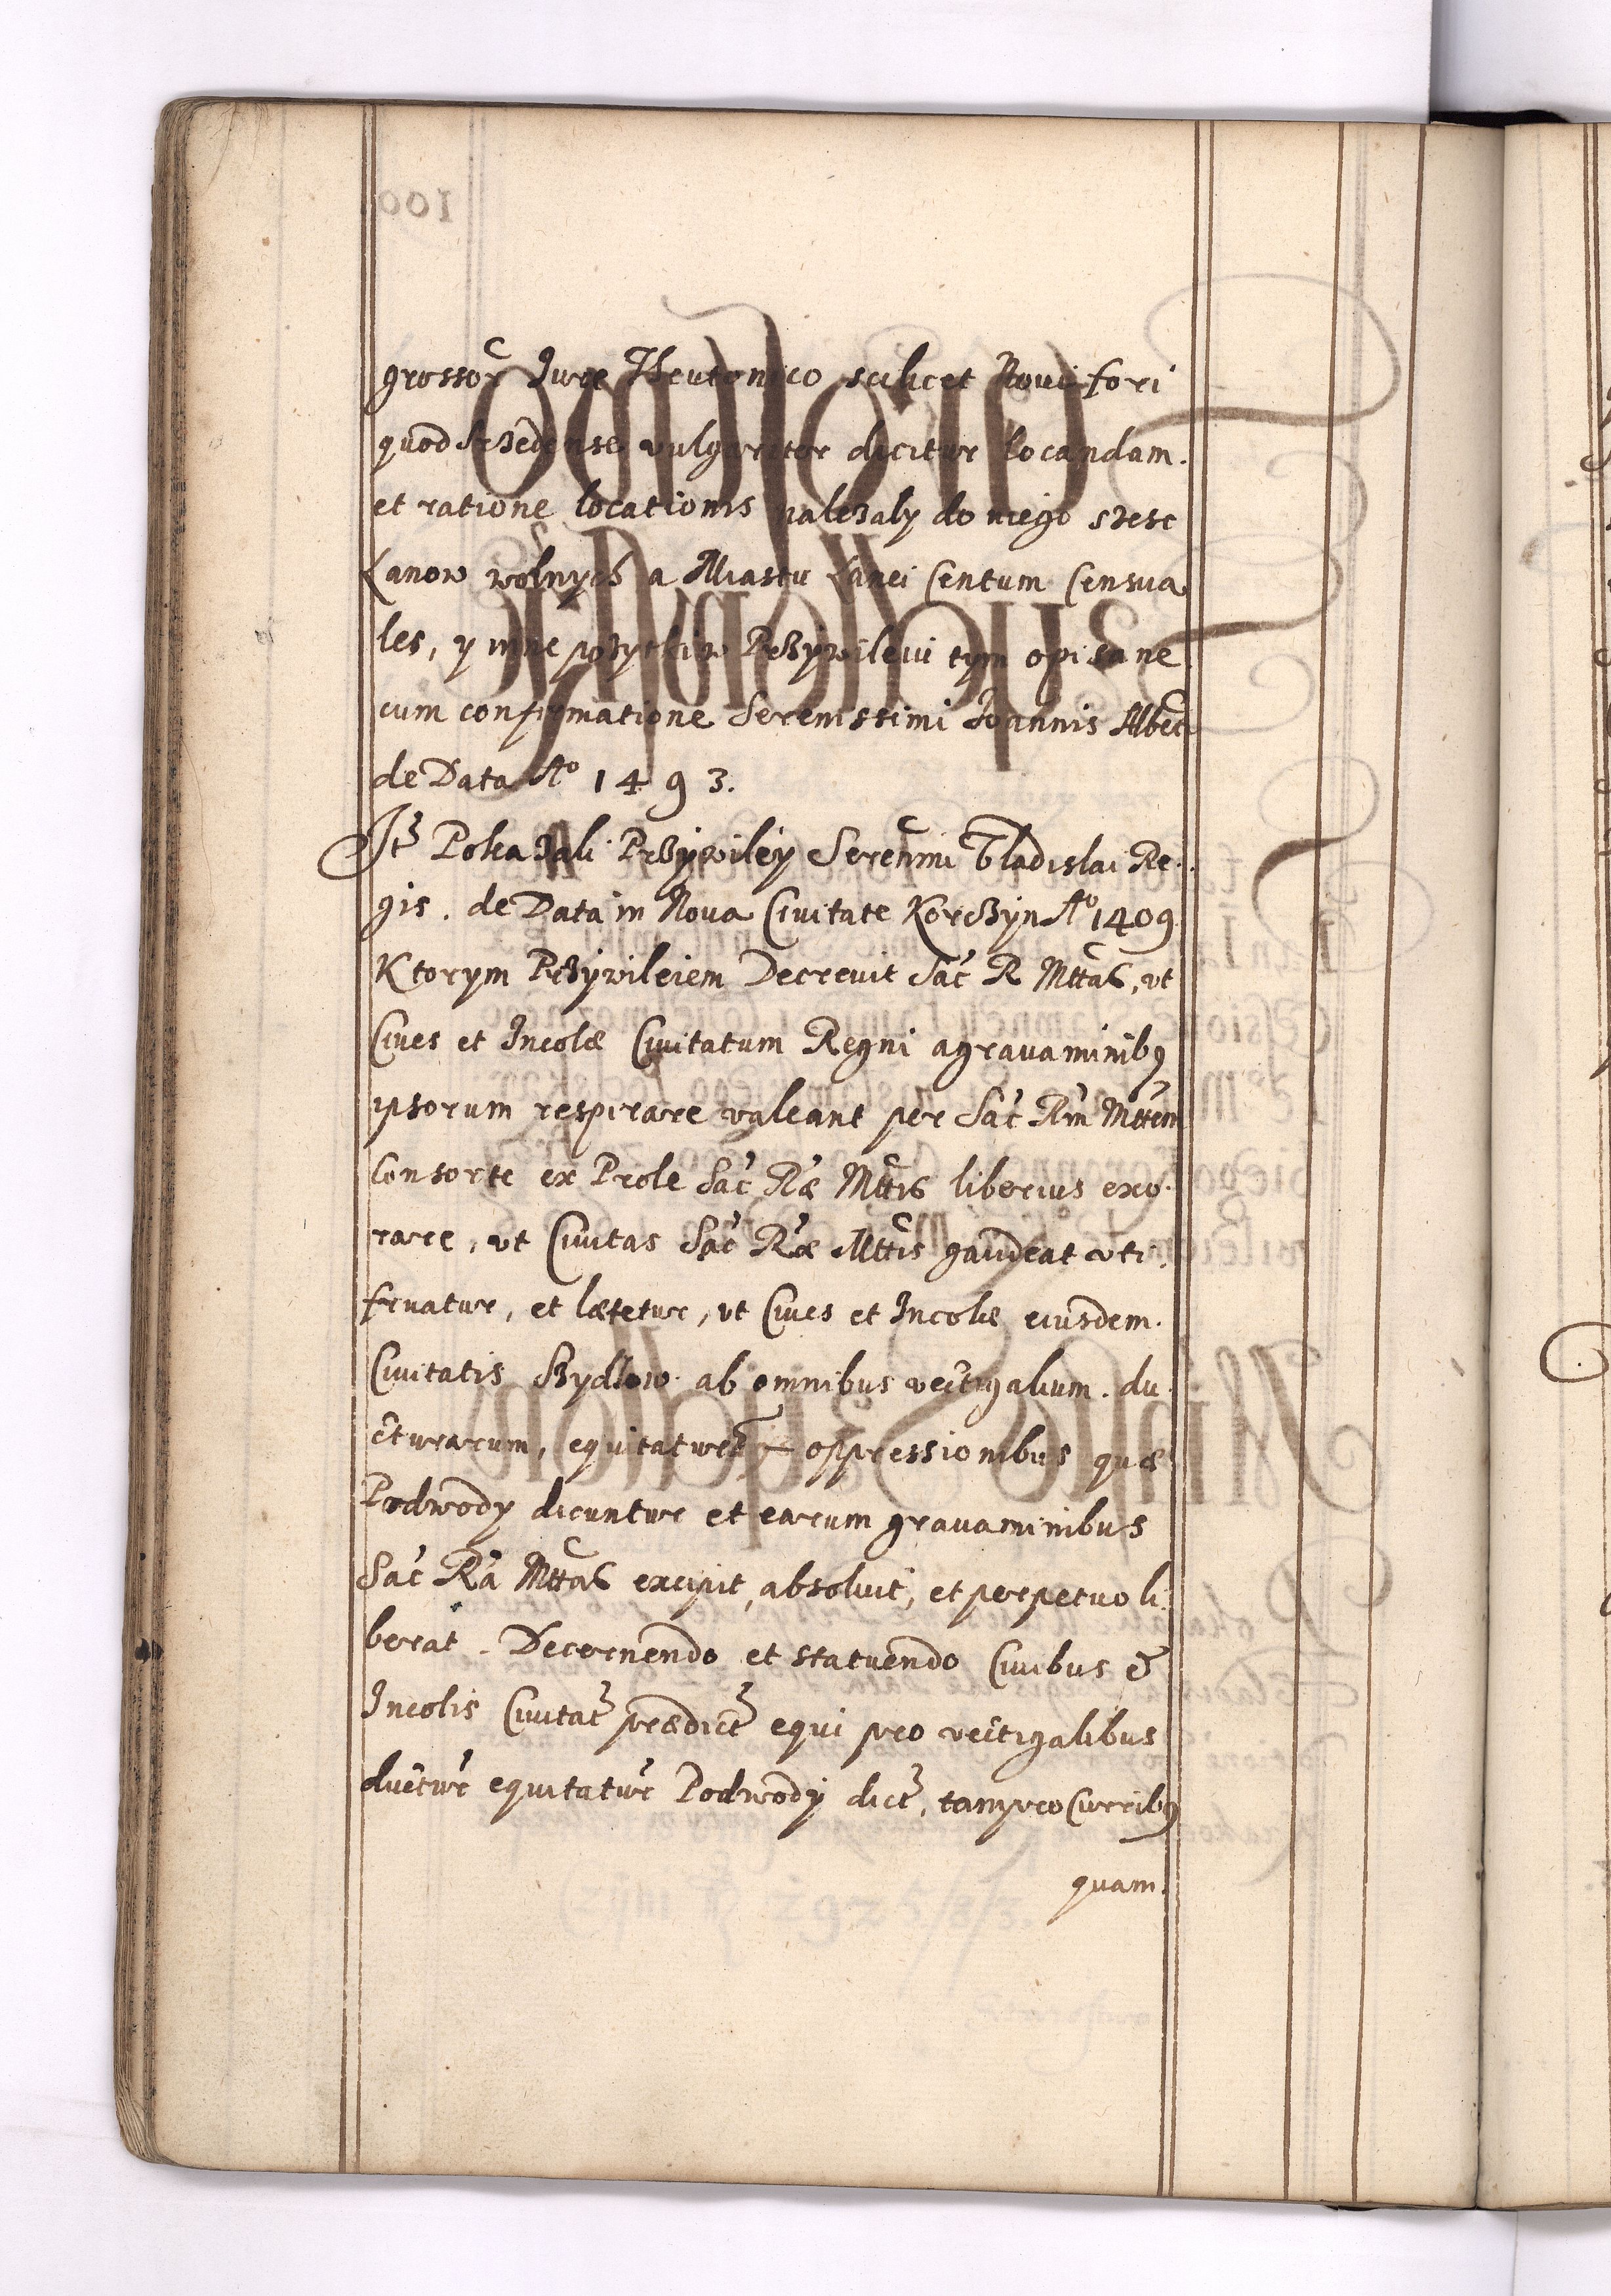 grossor Jure Theutonico scilicet Noui fori
quod Srzedense vulgariter dicitur locandam.
et ratione locationis nalezaly do niego szesc
Łanow wolnych a Miastu Łanei Centum Censua
les, y inne pozytki w Przywileiu tym opisane
cum confirmatione Serenissimi Joannis Alber
de Data Aº 1493.
Jt Pokazali Przywiley Serenmi Vladislai Re
gis. de Data in Noua Ciuitate Korczyn Aº 1409
Ktorym Przywileiem Decreuit Sac R Mttas, vt
Ciues et Incolæ Ciuitatum Regni agrauaminibus
ipsorum respirare valeant per Sac Rm Mttem
Consorte ex Prole Sac Ræ Mttis liberius exo
rare, vt Ciuitas Sac Ræ Mttis gaudeat vti
fruatur, et lætetur, vt Ciues et Incolæ eiusdem.
Ciuitatis Szydlow ab omnibus vectigalium. du
cturarum, equitatur oppressionibus quæ
Podwody dicuntur et earum grauaminibus
Sac Ra Mttas excipit, absoluit, et perpetuo li
berat. Decernendo et statuendo Ciuibus &
Incolis Ciuitat prædict equi pro vectigalibus
ductur equitatur Podwody dict, tam pro Curribus
quam.